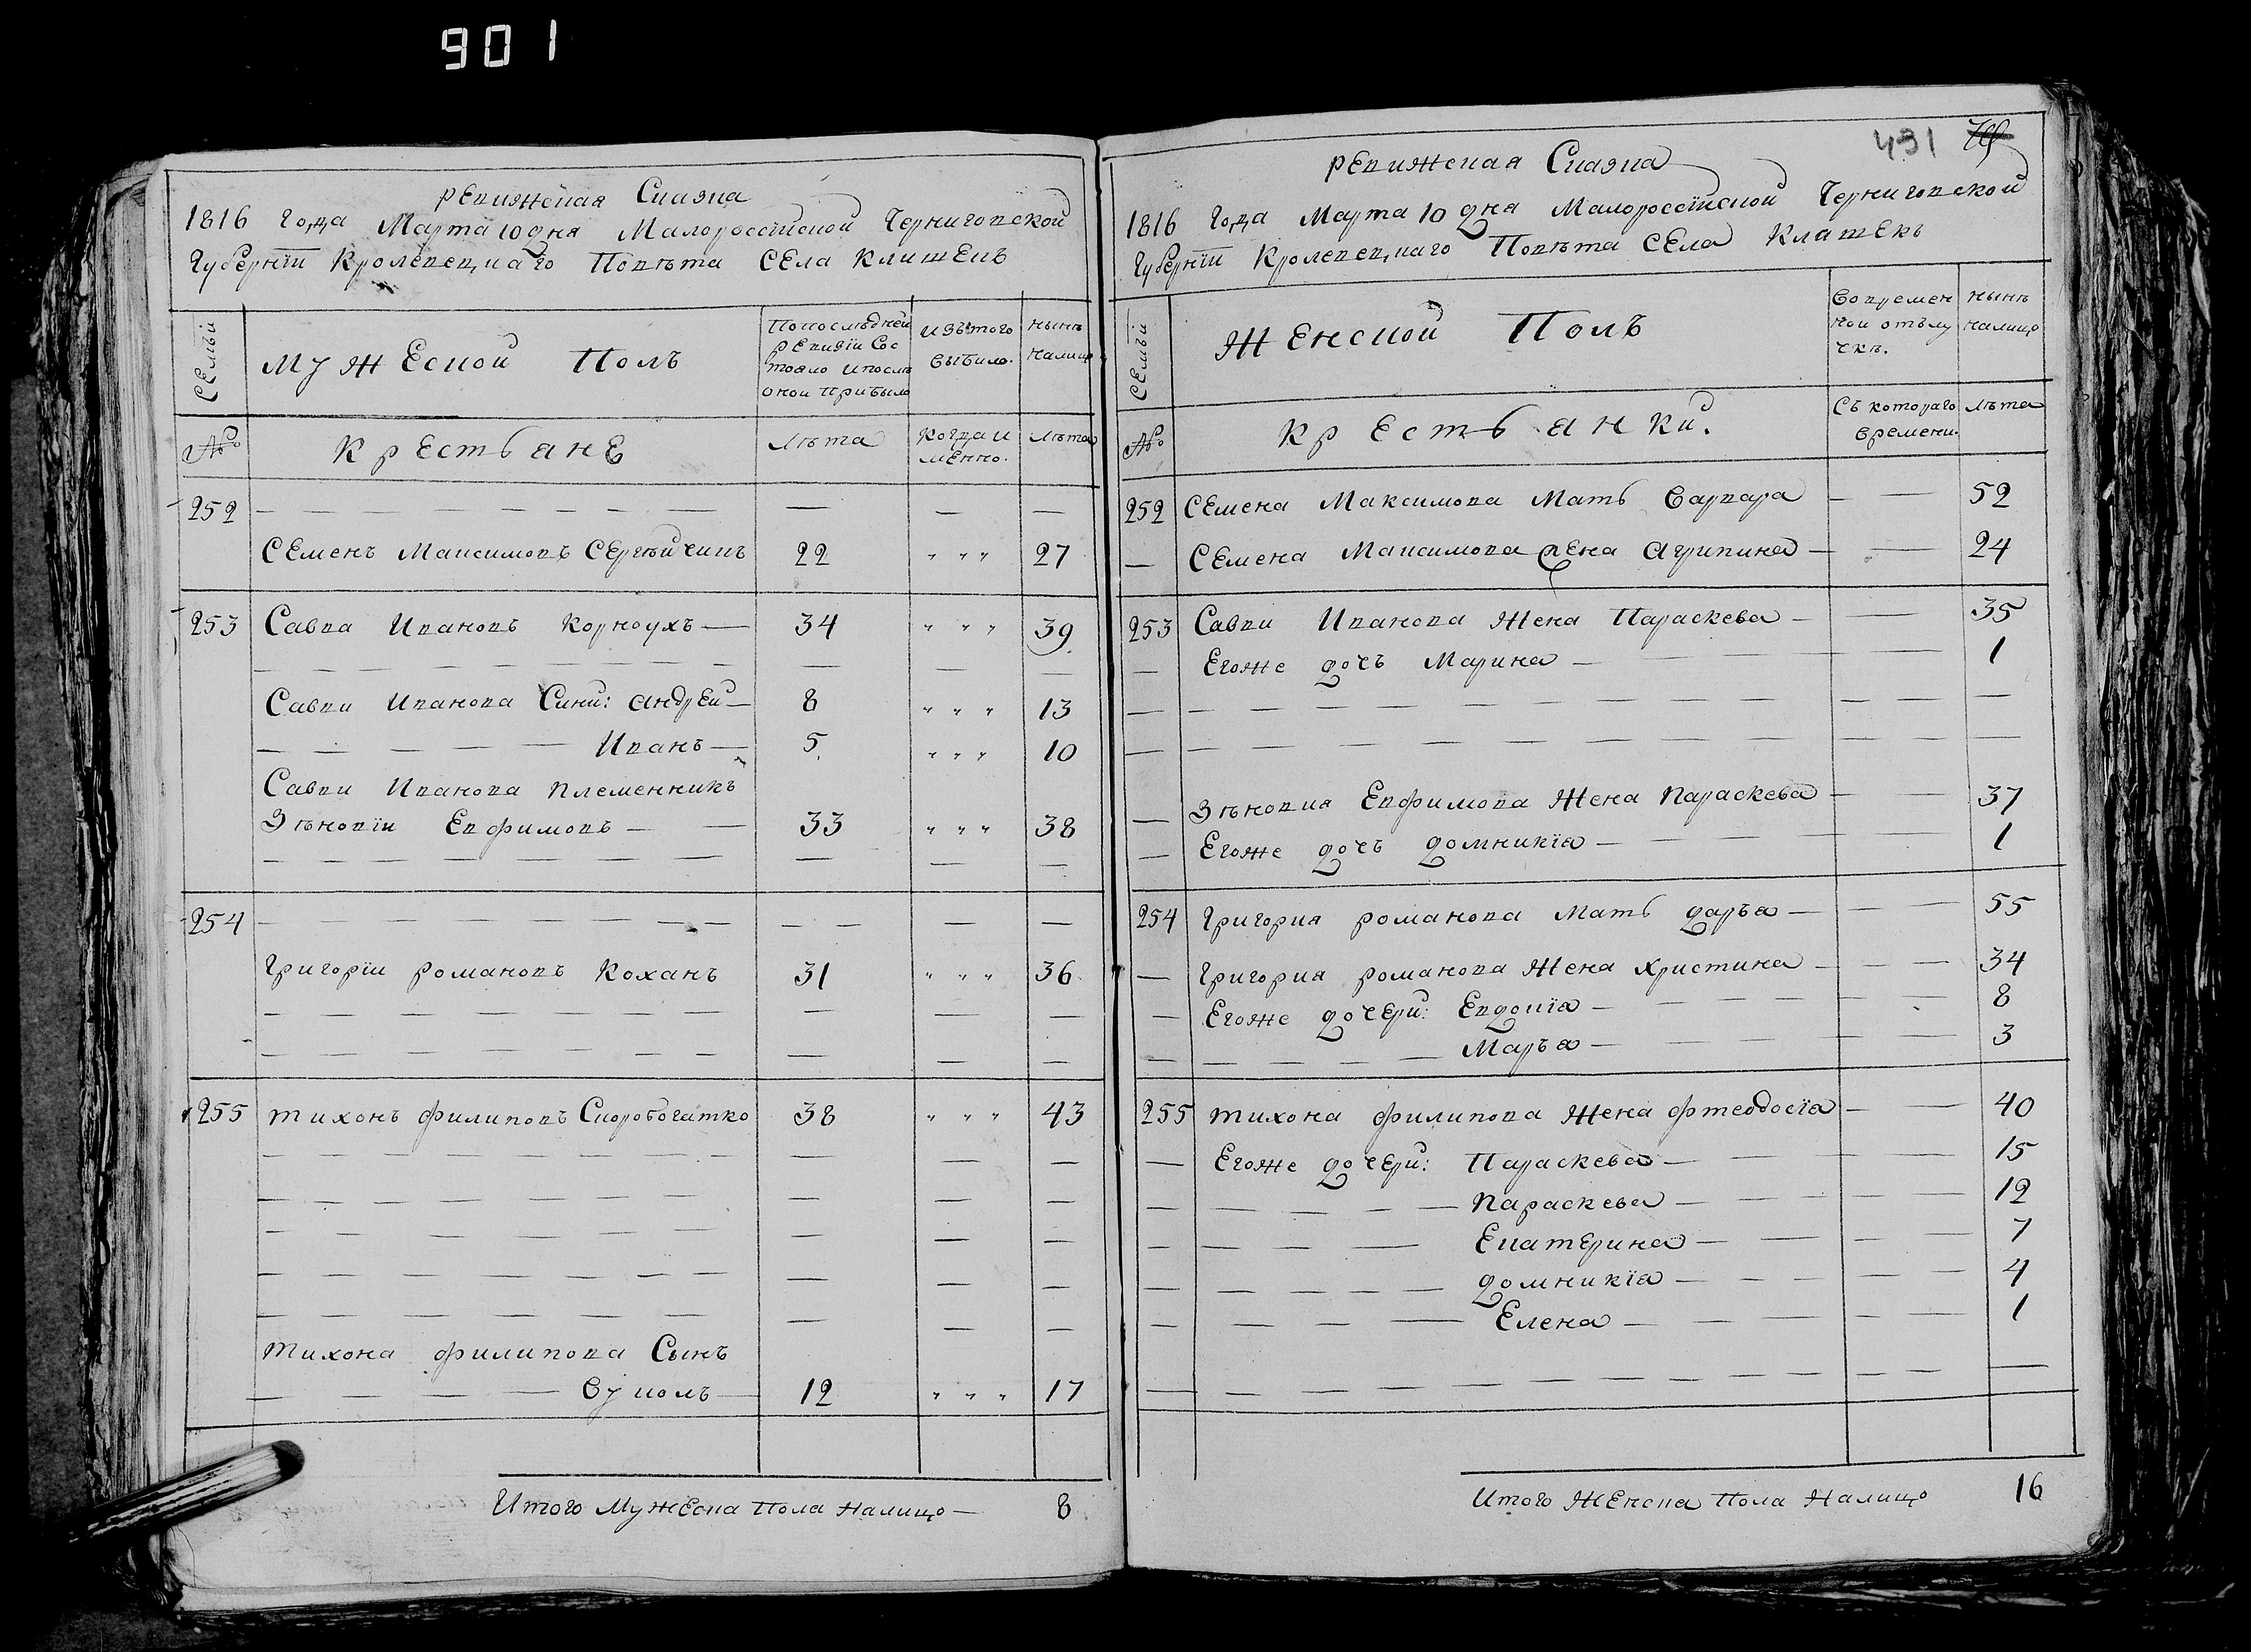 901
431
Ревижская Сказка
1816 Года Марта 10 дня Малороссійской Черниговской
Губерніи Кролевецкаго Повѣта Села Клишекъ
Семьи
Мужеской Полъ
По последней ревизіи сос тояло и посль оной прибыло
Изъ того выбыло.
Нынѣ налицо
№
Крестьяне
Лѣта
Когда и менно.
Лѣта
252 — — —
Семенъ Максимовъ Сергѣйчикъ 22 " " " 27
253 Савва Ивановъ Корноухъ — 34 " " " 39
Савви Иванова Сини: Андрей — 8 " " " 13
— — — Иванъ — 5 " " " 10
Савви Иванова племенникъ
Зѣновіи Евфимовъ — 33 " " " 38
254 — — —
Григоріи Романовъ Коханъ 31 " " " 36
255 Тихонъ Филиповъ Скоробогатко 38 " " " 43
Тихона Филипова Сынъ
— — — Вуколъ — 12 " " " 17
Итого Мужеска Пола Налицо — 8
Ревижская Сказка
1816 Года Марта 10 дня Малороссійской Черниговской
Губерніи Кролевецкаго Повѣта Села Клишекъ
Семьи
Женской Полъ
Во времен ной отълу чкѣ.
Нынѣ налицо
№
Крестьянки.
Съ котораго времени.
Лѣта
252 Семена Максимова Мать Варвара — — 52
— Семена Максимова жена Агрипина — — 24
253 Савви Иванова Жена Параскева — — 35
— Егоже дочъ Марина — — 1
— Зѣновия Евфимова Жена Параскева — — 37
— Егоже дочъ Домникіа — — 1
254 Григория Романова Мать Даръа — — 55
— Григория Романова Жена Христина — — 34
— Егоже дочери: Евдокіа — — 8
— — — Маръа — — 3
255 Тихона Филипова Жена Фтеодосіа — — 40
— Егоже дочери: Параскева — — 15
— — — Параскева — — 12
— — — Екатерина — — 7
— — — Домникіа — — 4
— — — Елена — — 1
Итого Женска Пола Налицо 16